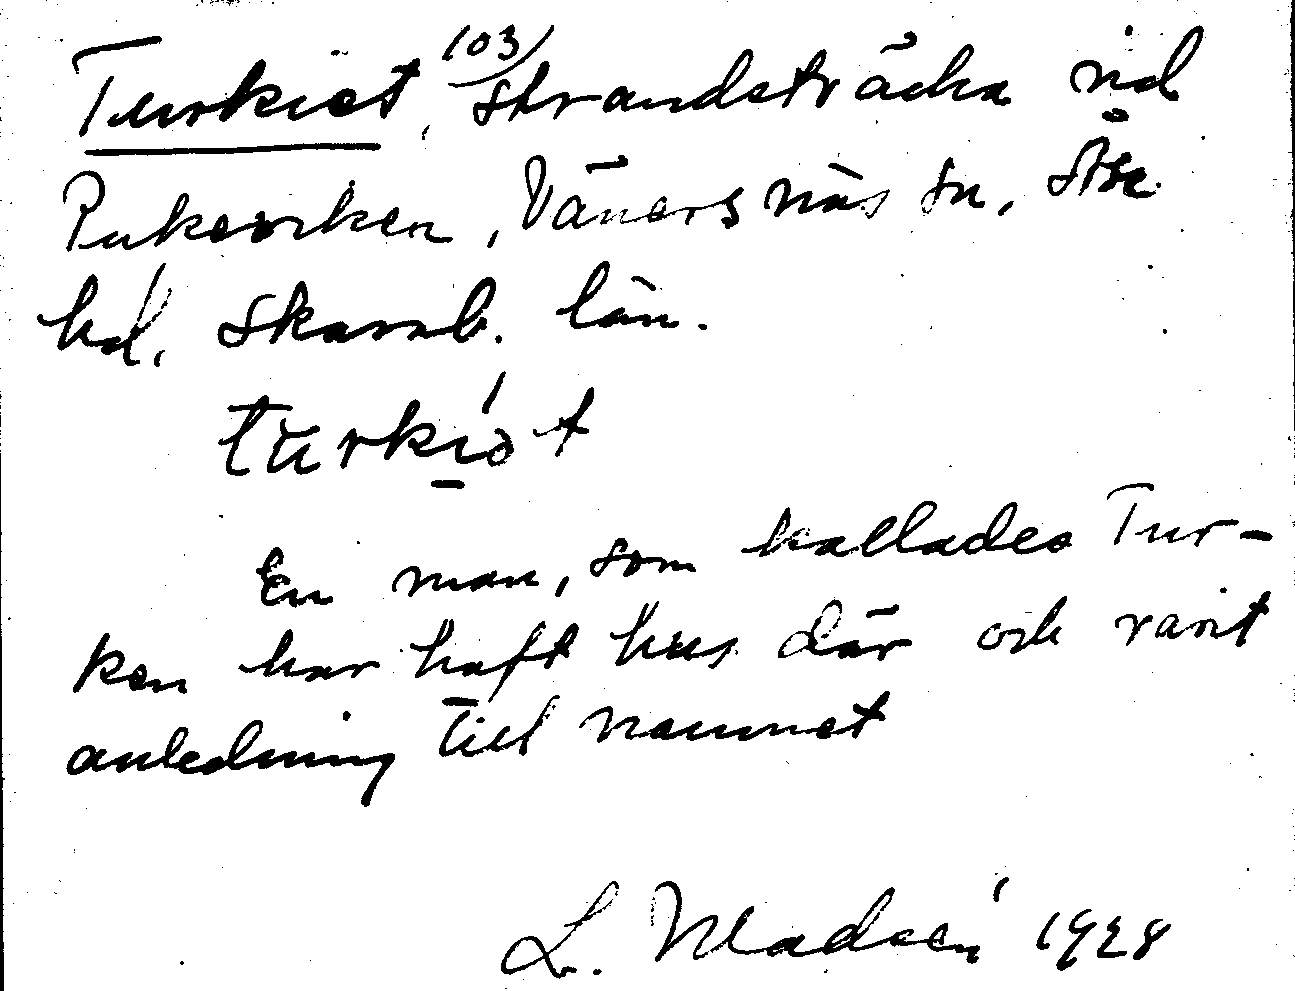 Turkiet, 103) strandsträcka vid
Pukeviken, Vänersnäs sn, Åse
hd, Skarab. län.
En man, som kallades Tur-
ken har haft hus där och varit
anledning till namnet
L. 1928